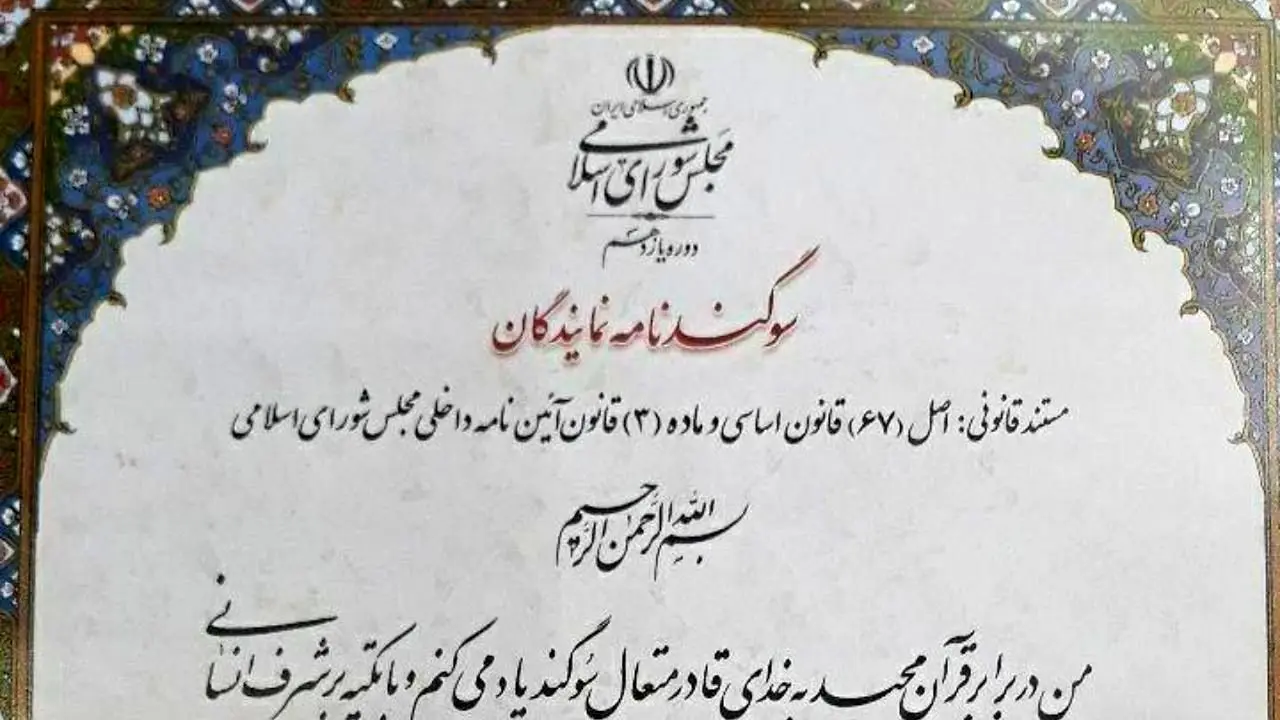 جمهوری اسلامی ایران
مجلس شورای اسلامی
دوره یازدهم
سوگندنامه نمایندگان
مستند قانونی: اصل (۶۷) قانون اساسی و ماده (۳) قانون آئین نامه داخلی مجلس شورای اسلامی
بسم الله الرحمن الرحیم
من در برابر قرآن مجید به خدای قادر متعال سوگند یاد می کنم و با تکیه بر شرف انسانی